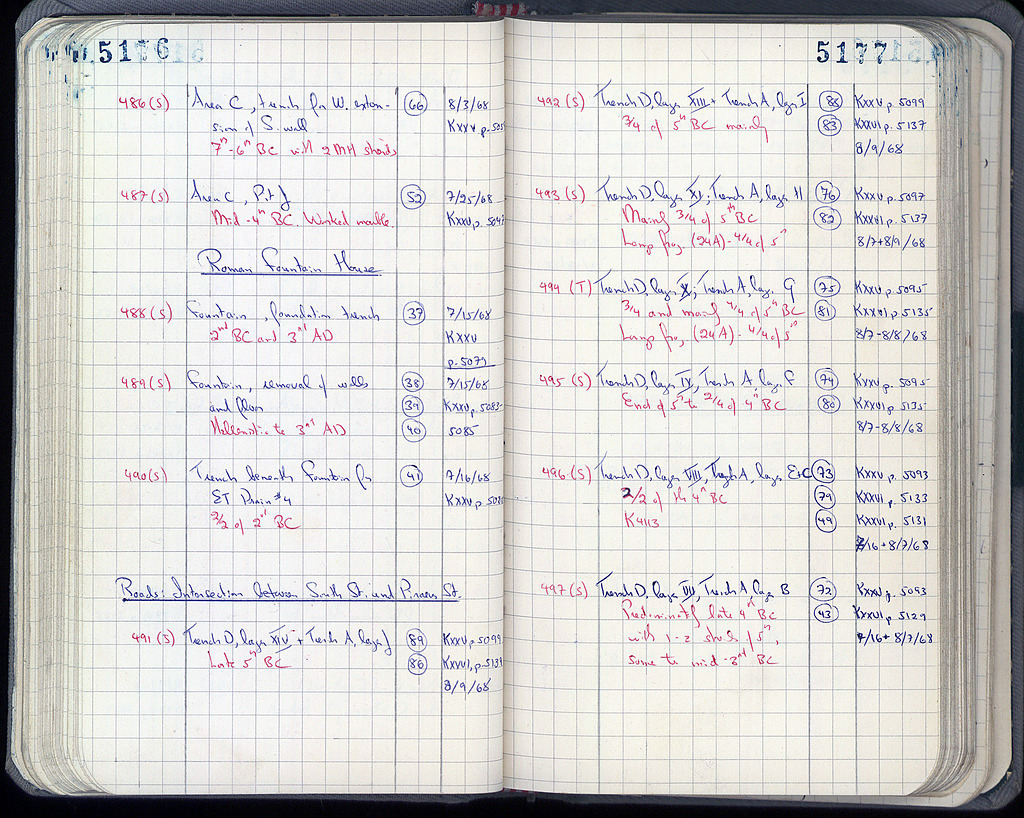 5176
486 (S) Area C, trench for W. exten- 66 8/3/68
sion of S. wall KXXV p. 505
7th-6th BC with 2 MH sherds
487 (S) Area C, Pit J 52 7/25/68
Mid-4th BC. Worked marble. KXXV, p. 5047
Roman Fountain House
488 (S) Fountain, foundation trench 37 7/15/68
2nd BC and 3rd AD KXXV
p. 5079
489 (S) Fountain, removal of walls 38 7/15/68
and floor 39 KXXV, p. 5083-
Hellenistic to 3rd AD 40 5085
490 (S) Trench beneath Fountain for 41 7/16/68
ET Drain #4 KXXV p. 508
2/2 of 2nd BC
Roads: Intersection between South St. and Piraeus St.
491 (S) Trench D, layer XIV + Trench A, layer J 89 KXXV, p. 5099
Late 5th BC 86 KXXVI, p. 5139
8/9/68
5177
492 (S) Trench D, layer XIII + Trench A, layer I 88 KXXV p. 5099
3/4 of 5th BC mainly 83 KXXVI p. 5137
8/9/68
493 (S) Trench D, layer XI; Trench A, layer H 76 KXXV p. 5097
Mainly 3/4 of 5th BC 82 KXXVI p. 5137
Lamp frag. (24A) - 4/4 of 5th 8/7+8/9/68
494 (T) Trench D, layer X; Trench A, layer G 75 KXXV p. 5095
3/4 and mainly 4/4 of 5th BC 81 KXXVI p. 5135
Lamp frag. (24A) - 4/4 of 5th 8/7-8/8/68
495 (S) Trench D, layer IX, Trench A, layer F 74 KXXV p. 5095
End of 5th to 2/4 of 4th BC 80 KXXVI p. 5135
8/7-8/8/68
496 (S) Trench D, layer VIII, Trench A, layer E+C 73 KXXV p. 5093
2/2 of the 4th BC 79 KXXVI p. 5133
K4113 49 KXXVI p. 5131
7/16+8/7/68
497 (S) Trench D, layer VII, Trench A layer B 72 KXXV p. 5093
Predominantly late 4th BC 43 KXXVI p. 5129
with 1-2 sherds of 5th, 7/16+8/7/68
some to mid-3rd BC